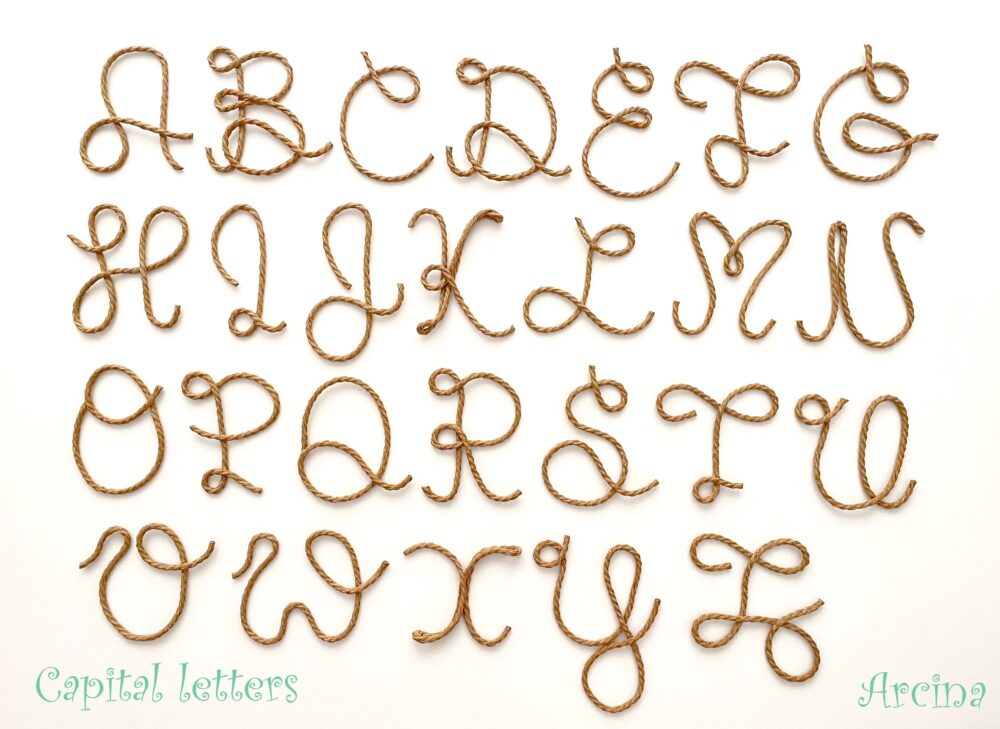 A B C D E F G
H I J K L M N
O P Q R S T U
V W X Y Z
Capital letters
Arcina